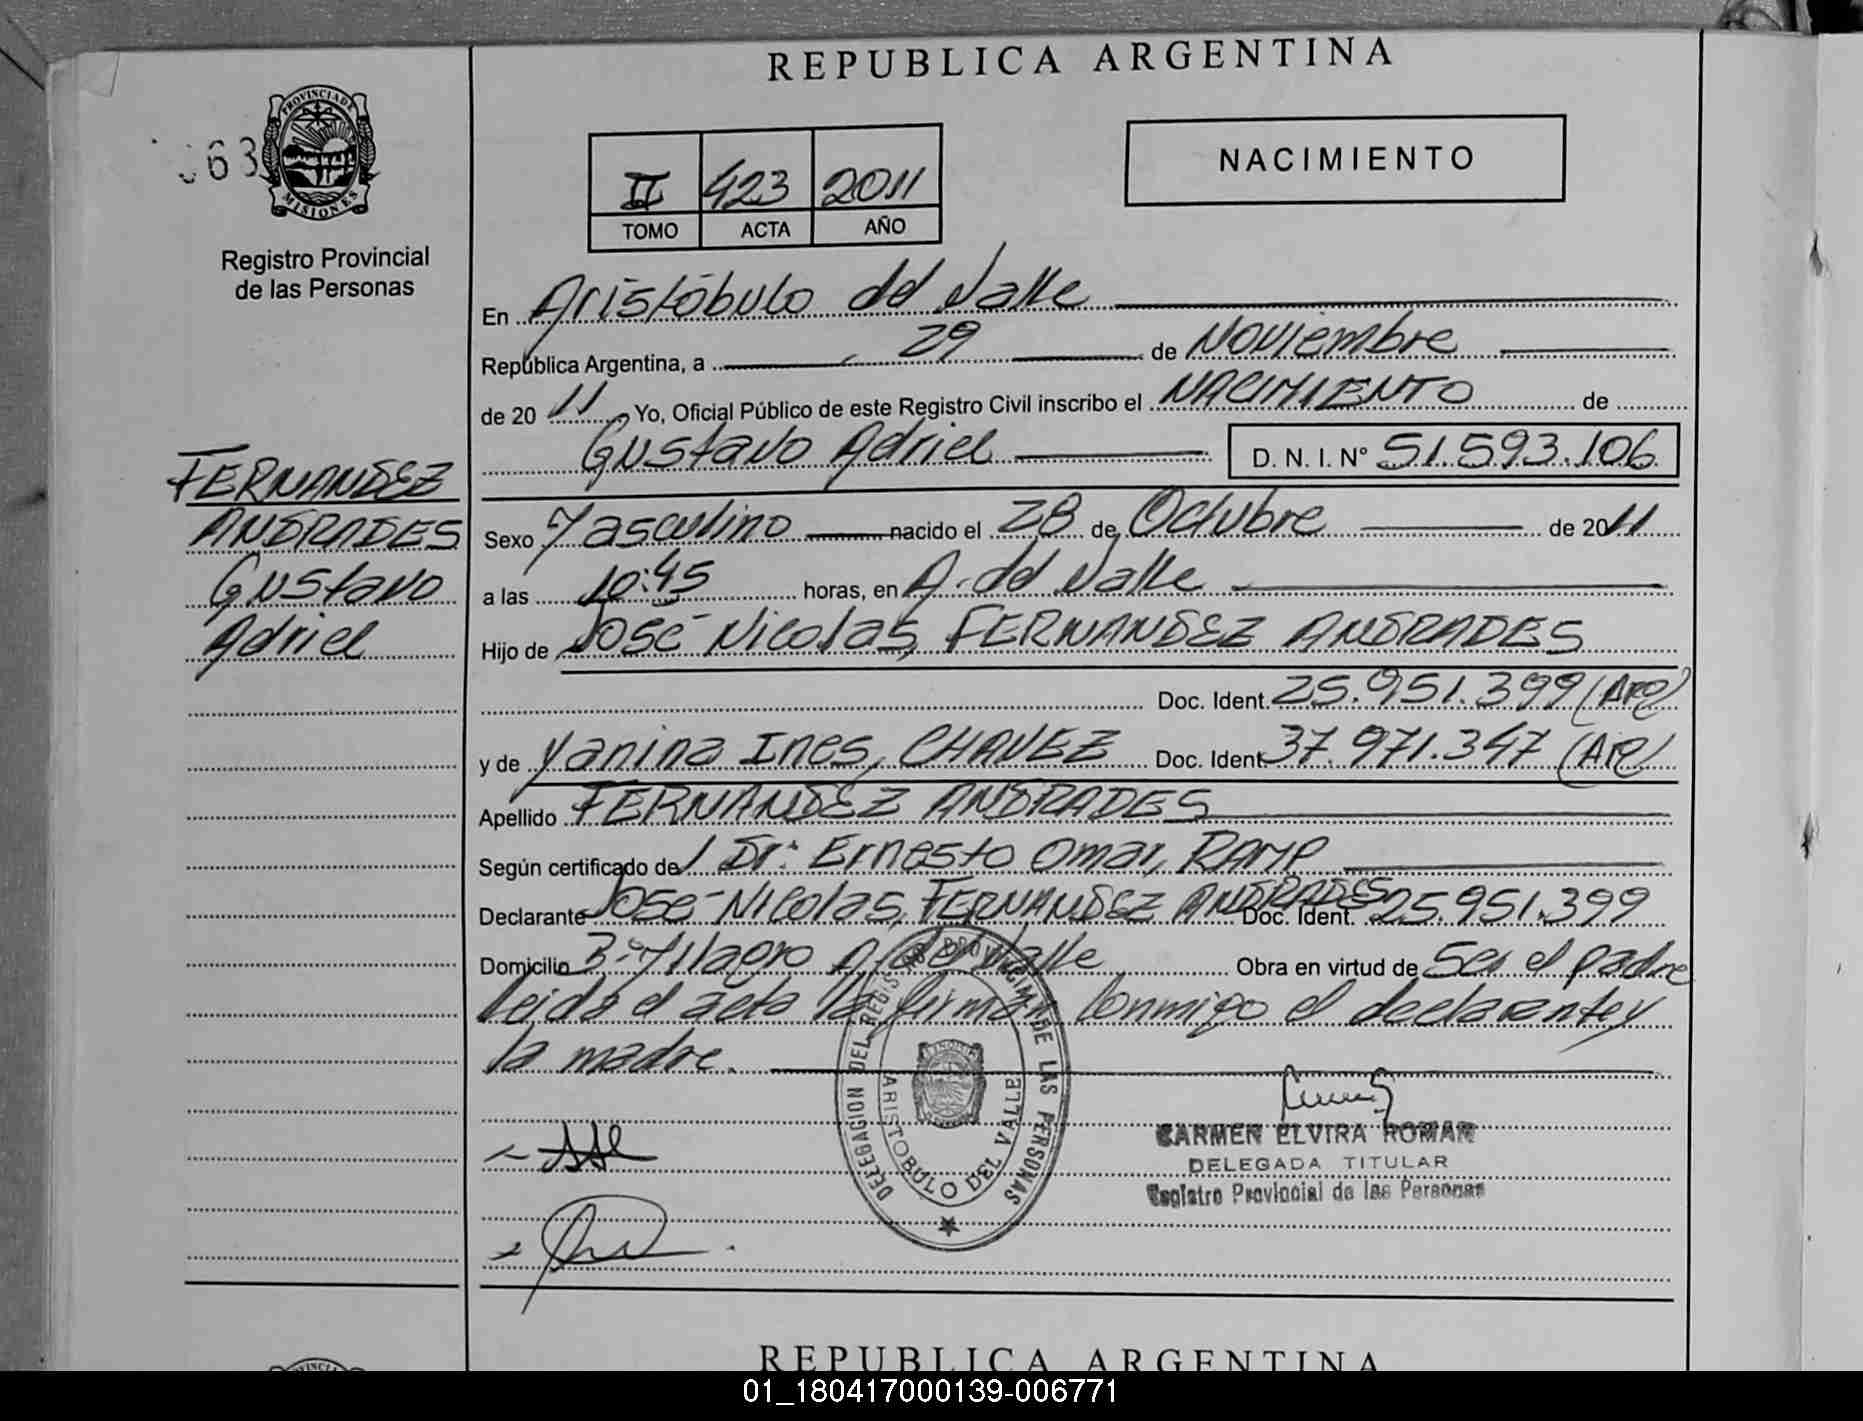 REPUBLICA ARGENTINA
63
PROVINCIA DE MISIONES
Registro Provincial
de las Personas
II 423 2011
TOMO ACTA AÑO
NACIMIENTO
En Aristóbulo del Valle
República Argentina, a 29 de Noviembre
de 20 11 Yo, Oficial Público de este Registro Civil inscribo el NACIMIENTO de
Gustavo Adriel D. N. I. N° 51.593.106
FERNANDEZ
ANDRADES
Gustavo
Adriel
Sexo Masculino nacido el 28 de Octubre de 2011
a las 10:45 horas, en A. del Valle
Hijo de José Nicolas, FERNANDEZ ANDRADES
Doc. Ident. 25.951.399 (Arg)
y de Yanina Ines, CHAVEZ Doc. Ident 37.971.347 (Arg)
Apellido FERNANDEZ ANDRADES
Según certificado del Dr: Ernesto Omar, RAMP
Declarante José Nicolas, FERNANDEZ ANDRADES Doc. Ident. 25.951.399
Domicilio B° Milagro A. del Valle Obra en virtud de Ser el padre
leida el acta la firman conmigo el declarante y
la madre.
DELEGACION DEL REGISTRO PROVINCIAL DE LAS PERSONAS
ARISTOBULO DEL VALLE
CARMEN ELVIRA ROMAN
DELEGADA TITULAR
Registro Provincial de las Personas
REPUBLICA ARGENTINA
01_180417000139-006771